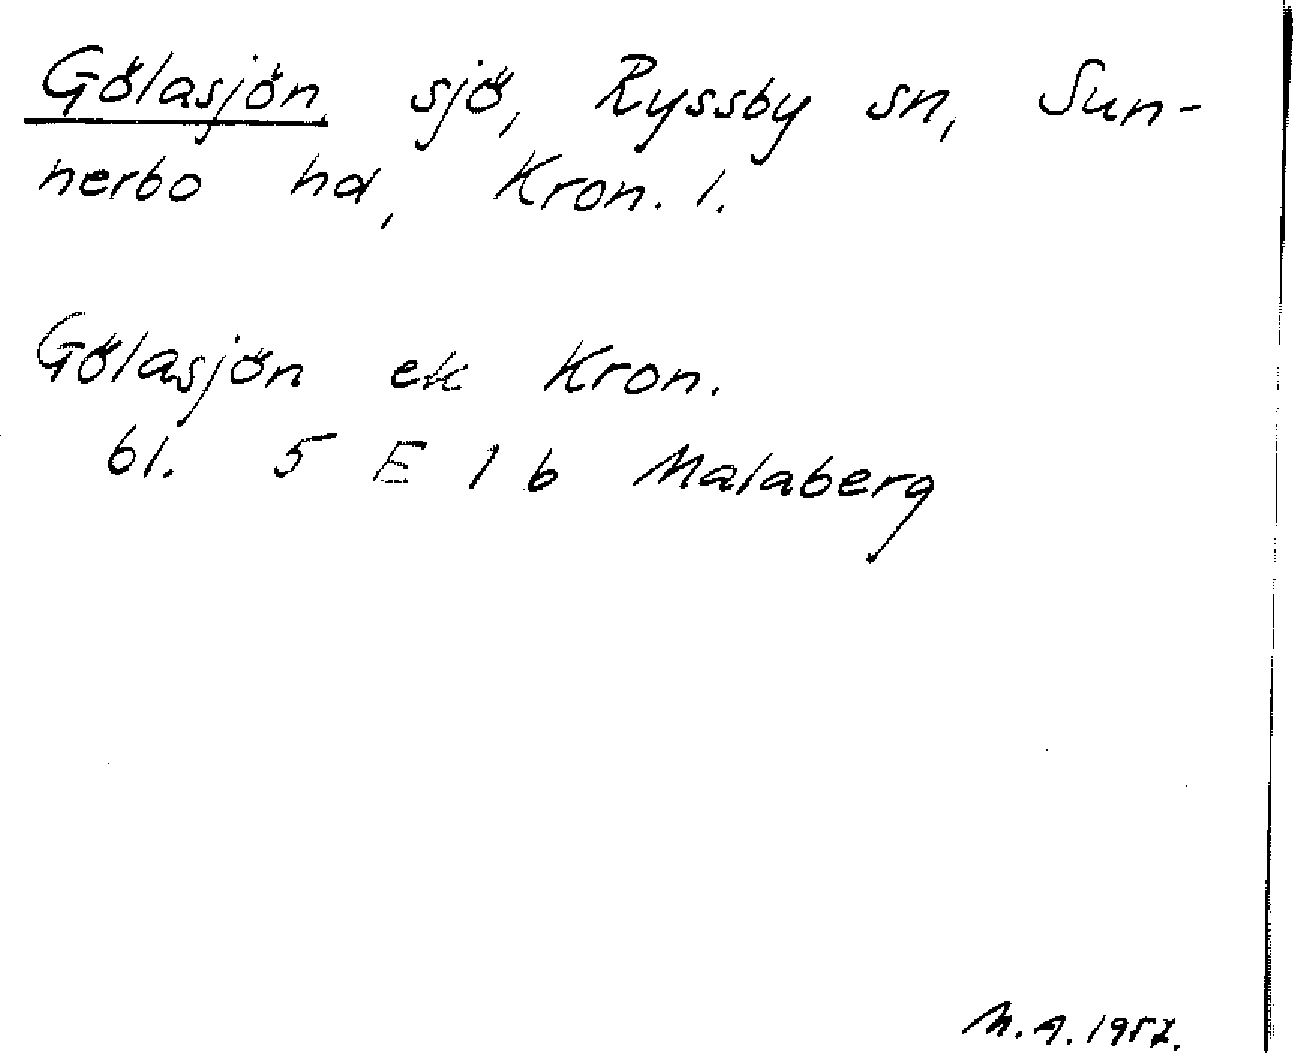 Gölasjön sjö, Ryssby sn, Sun-
nerbo hd, Kron. l.
Gölasjön ek Kron.
bl. 5 E 1 b Malaberg
M.A. 1957.